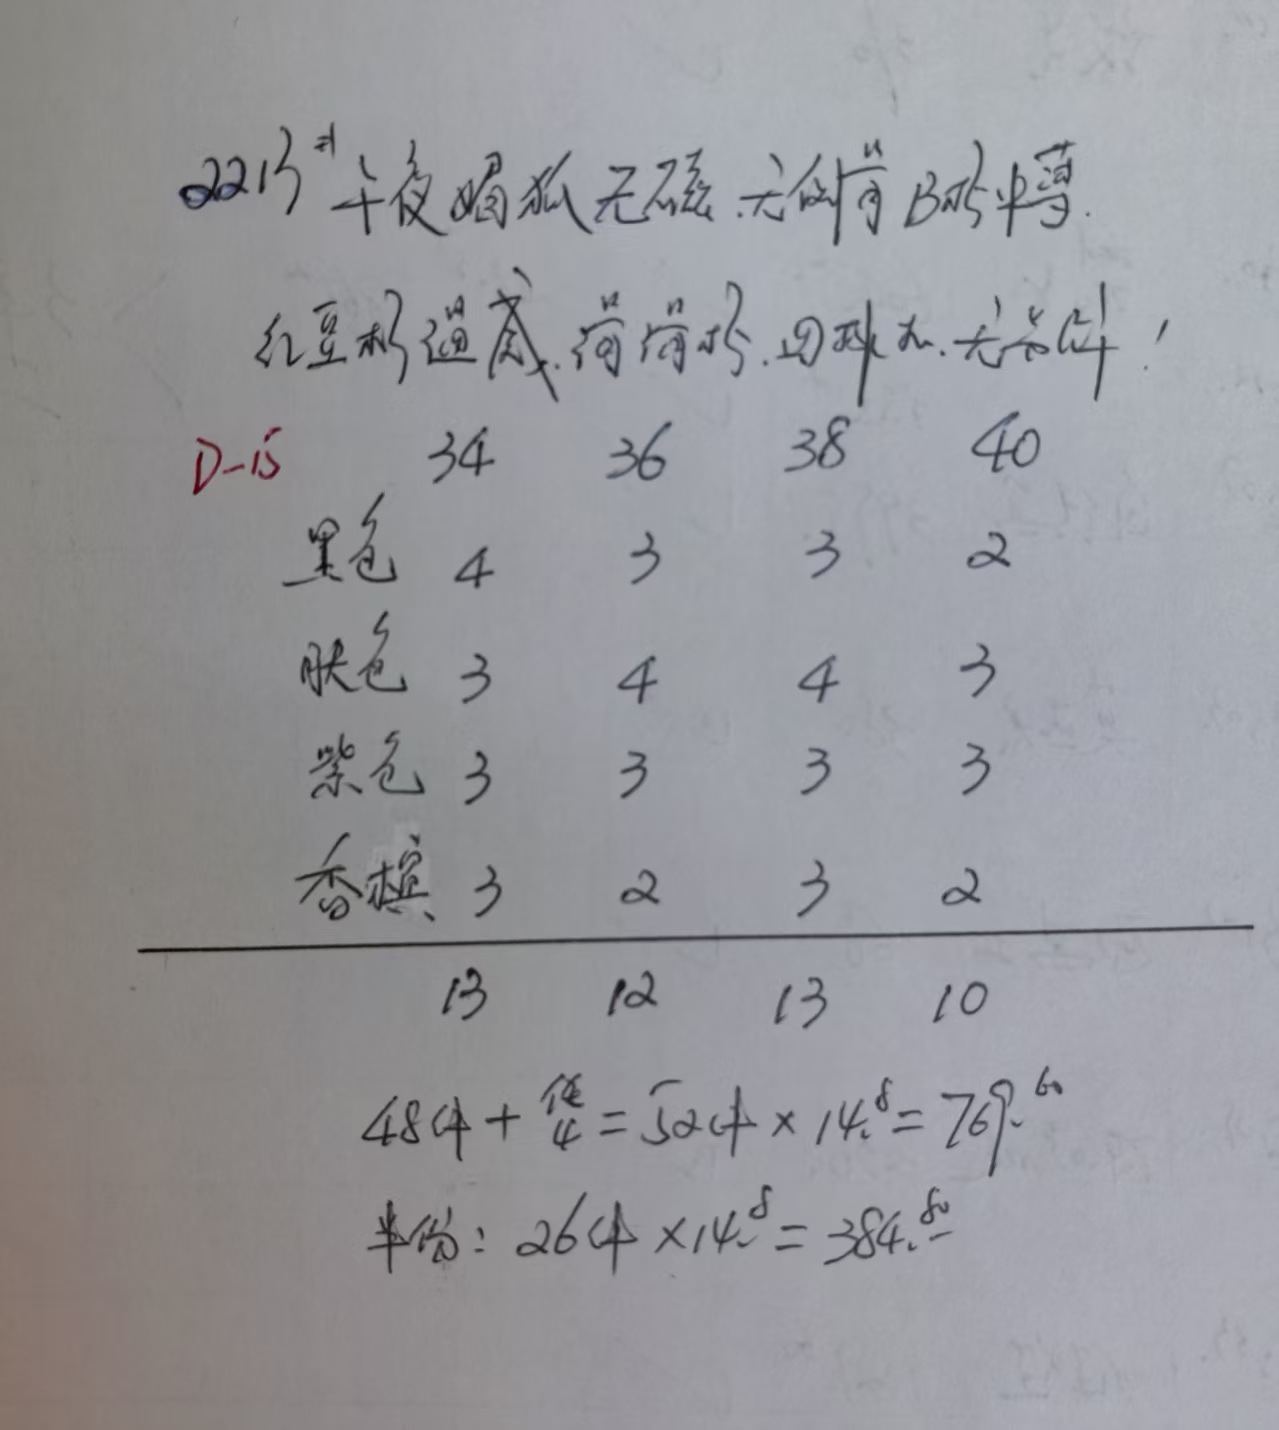 2213# 午夜媚狐无磁.无侧骨B杯中薄.
红豆杉温感. 杯. .无
D-15 34 36 38 40
黑色 4 3 3 2
肤色 3 4 4 3
紫色 3 3 3 3
香槟 3 2 3 2
13 12 13 10
48件+ 4=52件×14.8=769.60
半份:26件×14.8=384.80